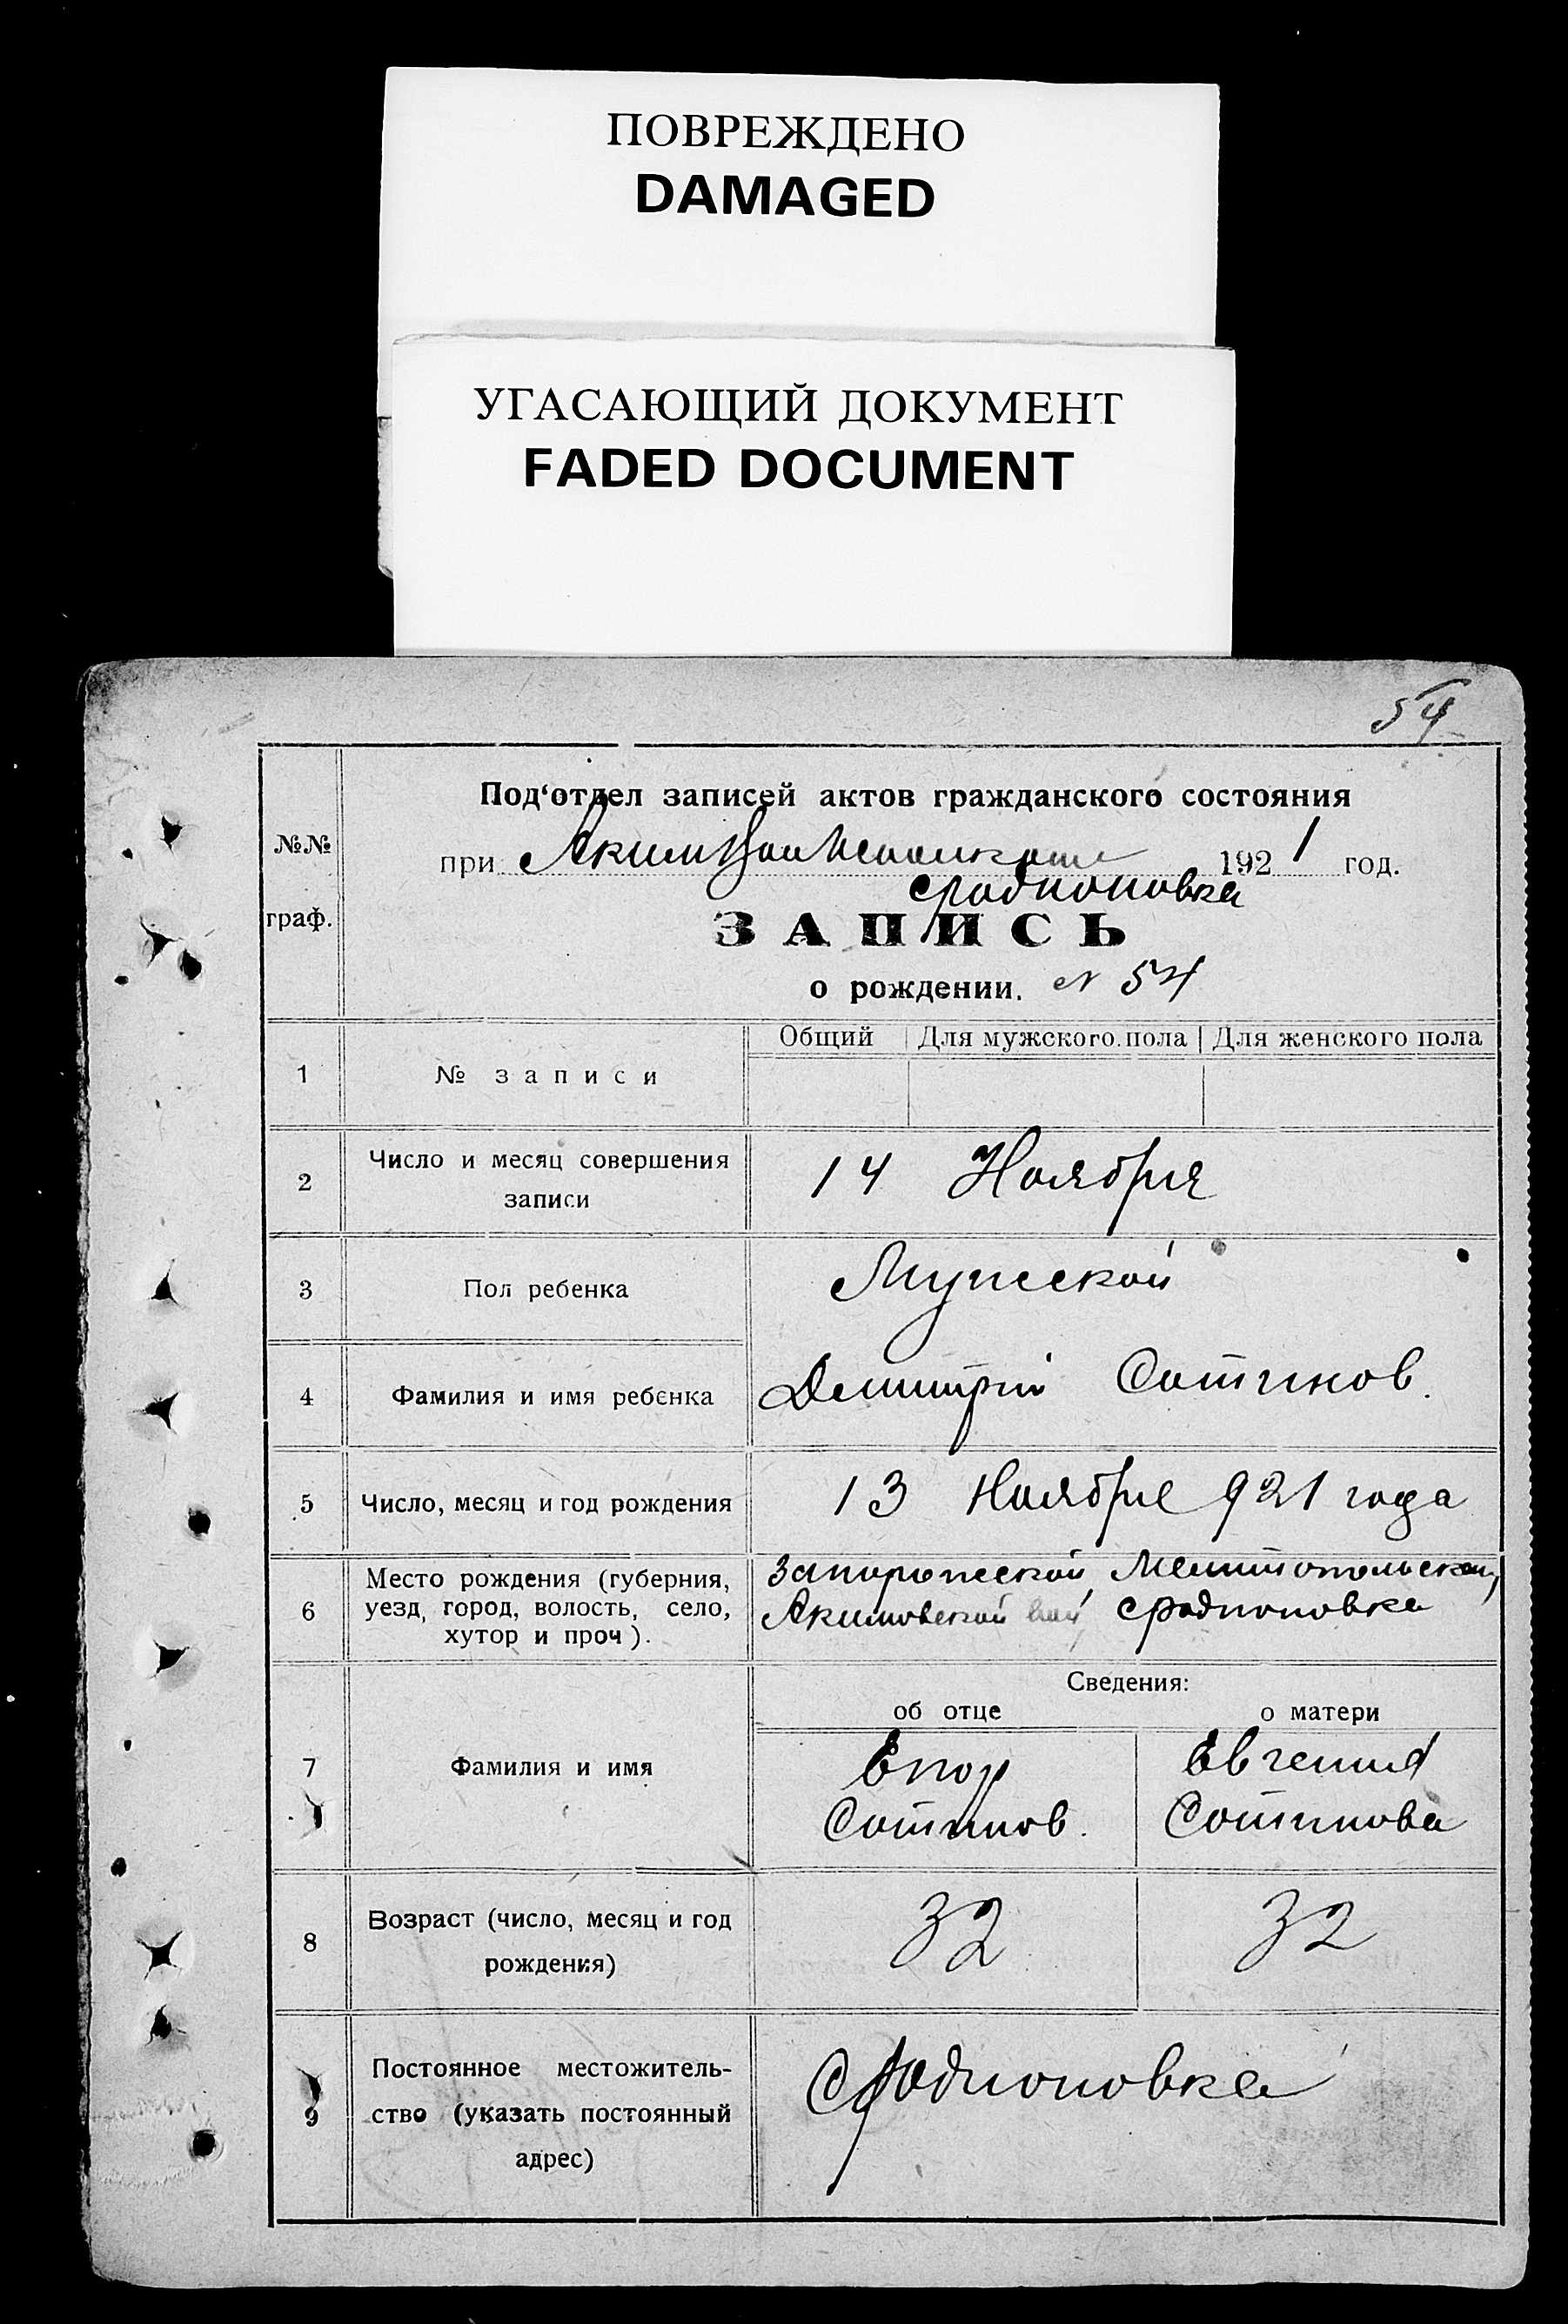 ПОВРЕЖДЕНО
DAMAGED
УГАСАЮЩИЙ ДОКУМЕНТ
FADED DOCUMENT
54
Под‘отдел записей актов гражданского состояния
№№
граф.
при 1921 год.
с Родионовка
ЗАПИСЬ
о рождении. N 54
Общий Для мужского пола Для женского пола
1 № записи
2 Число и месяц совершения
записи
14 Ноября
3 Пол ребенка Мужской
4 Фамилия и имя ребенка Димитрий Сотников.
5 Число, месяц и год рождения 13 Ноября 921 года
6 Место рождения (губерния,
уезд, город, волость, село,
хутор и проч).
Запорожской Мелитопольской,
Акимовской вол, с Родионовка
Сведения:
об отце о матери
7 Фамилия и имя
Егор
Сотников.
Евгения
Сотникова
8 Возраст (число, месяц и год
рождения)
32 32
9 Постоянное местожитель-
ство (указать постоянный
адрес)
С Родионовка